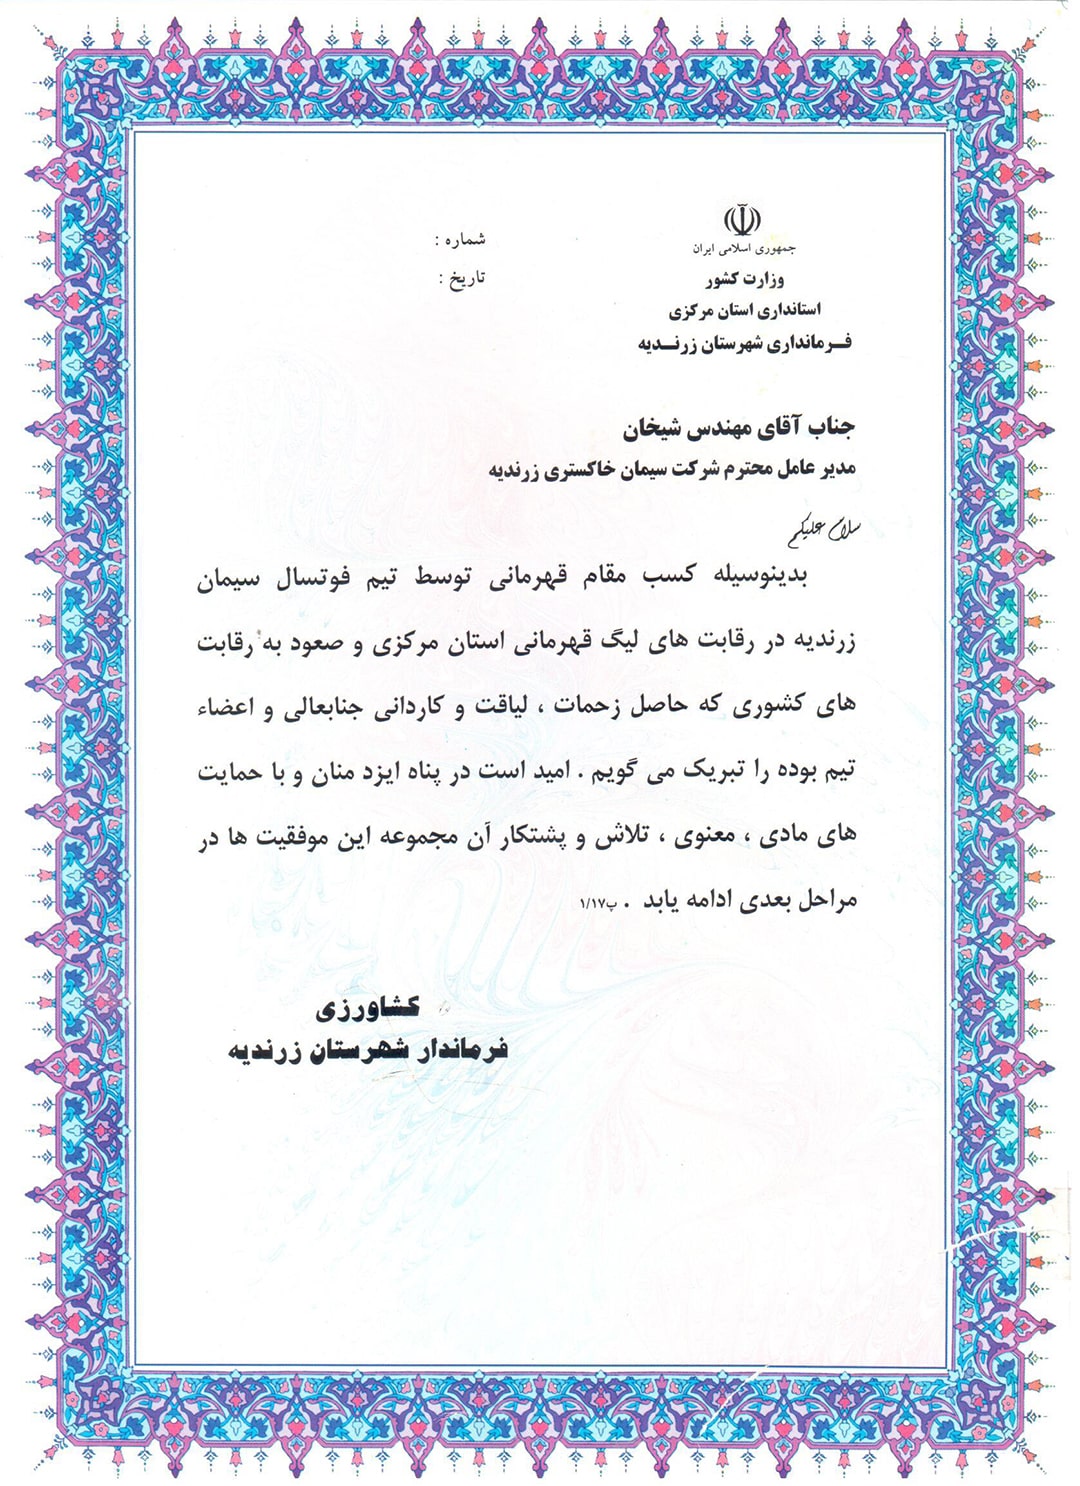 جمهوری اسلامی ایران
وزارت کشور
استانداری استان مرکزی
فـرمانداری شهرستان زرنـدیه
شماره :
تاریخ :
جناب آقای مهندس شیخان
مدیر عامل محترم شرکت سیمان خاکستری زرندیه
سلام علیکم
بدینوسیله کسب مقام قهرمانی توسط تیم فوتسال سیمان
زرندیه در رقابت های لیگ قهرمانی استان مرکزی و صعود به رقابت
های کشوری که حاصل زحمات ، لیاقت و کاردانی جنابعالی و اعضاء
تیم بوده را تبریک می گویم . امید است در پناه ایزد منان و با حمایت
های مادی ، معنوی ، تلاش و پشتکار آن مجموعه این موفقیت ها در
مراحل بعدی ادامه یابد . پ۱/۱۷
کشاورزی
فرماندار شهرستان زرندیه